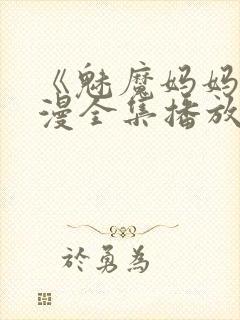 《魅魔妈妈
漫全集播放
於勇為